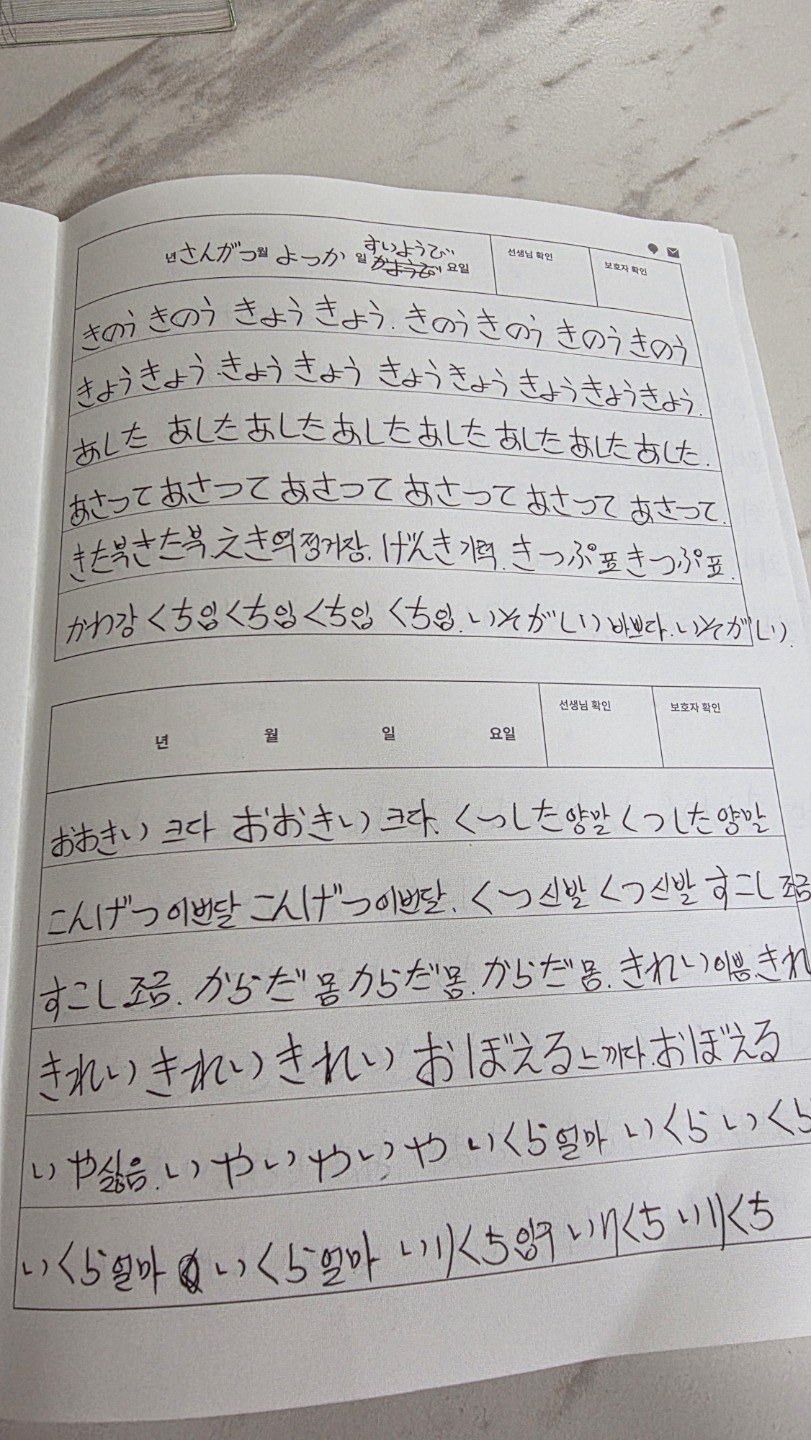 すいようび
年さんがつ월 よっか 일 かようび 요일 선생님 확인 보호자 확인
きのう きのう きょう きょう. きのう きのう きのう きのう
きょう きょう きょう きょう きょう きょう きょう きょう きょう.
あした あした あした あした あした あした あした あした.
あさって あさって あさって あさって あさって あさって.
きた북 きた북. えき역 정거장. げんき기력. きっぷ표 きっぷ표.
かわ강 くち입 くち입 くち입 くち입. いそがしい 바쁘다. いそがしい.
년 월 일 요일 선생님 확인 보호자 확인
おおきい 크다 おおきい 크다. くつした양말 くつした양말
こんげつ이번달 こんげつ이번달. くつ신발 くつ신발 すこし 조금
すこし 조금. からだ 몸 からだ 몸. からだ 몸. きれい이쁨. きれ
きれい きれい きれい おぼえる 느끼다. おぼえる
いや싫음. いや いや いや いくら얼마 いくら いくら
いくら얼마 いくら얼마 いりくち입구 いりくち いりくち